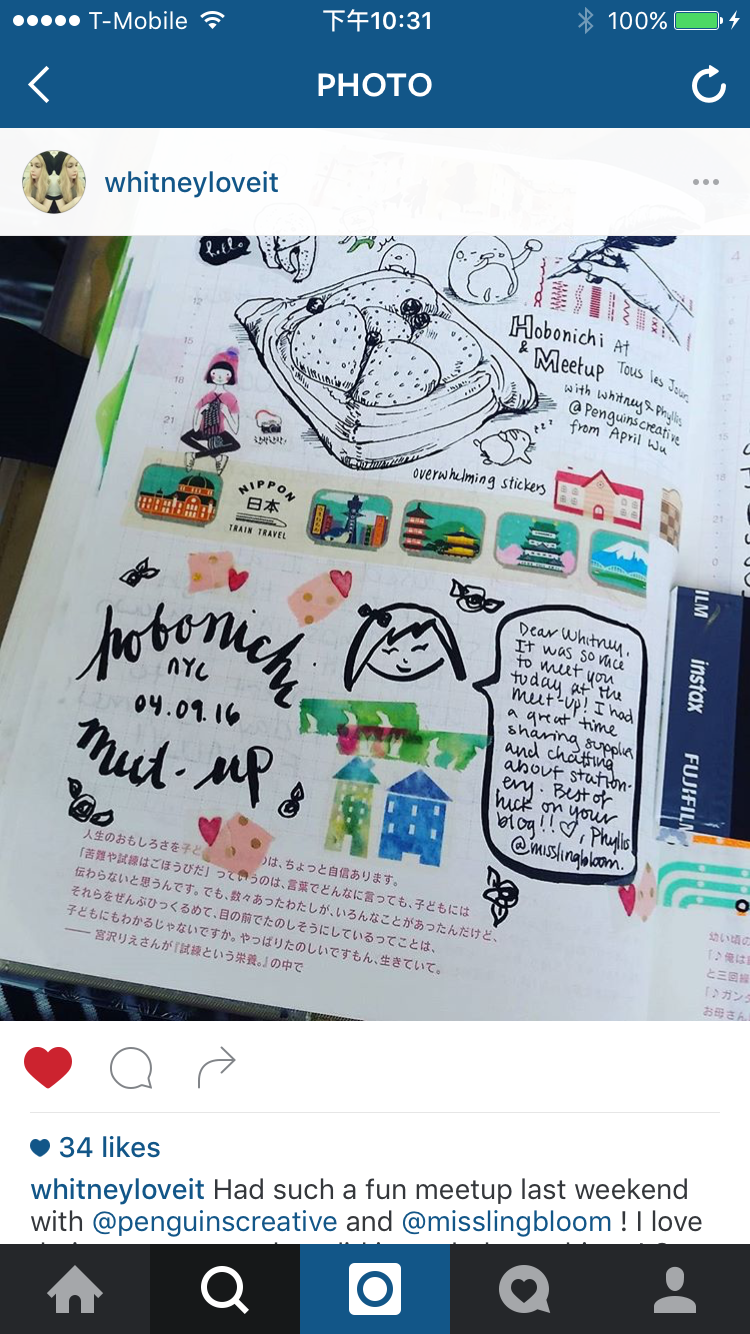 T-Mobile 下午10:31 100%
PHOTO
whitneyloveit
hello
Hobonichi At
& Meetup Tous les Jours
with Whitney & Phyllis
@Penguinscreative
from April Wu
12
15
18
21
zzz
overwhelming stickers
NIPPON
日本
TRAIN TRAVEL
hobonichi
NYC
04.09.16
meet-up
Dear Whitney,
It was so nice
to meet you
today at the
meet-up! I had
a great time
sharing supplies
and chatting
about station-
ery. Best of
luck on your
blog!! ♡, Phyllis
@misslingbloom.
instax
FUJIFILM
人生のおもしろさを子ど は、ちょっと自信あります。
「苦難や試練はごほうびだ」っていうのは、言葉でどんなに言っても、子どもには
伝わらないと思うんです。でも、数々あったわたしが、いろんなことがあったんだけど、
それらをぜんぶひっくるめて、目の前でたのしそうにしているってことは、
子どもにもわかるじゃないですか。やっぱりたのしいですもん、生きていて。
—— 宮沢りえさんが『試練という栄養。』の中で
幼い頃の
「♪俺は
と三回線
「♪ガンダ
お母さん
34 likes
whitneyloveit Had such a fun meetup last weekend
with @penguinscreative and @misslingbloom ! I love